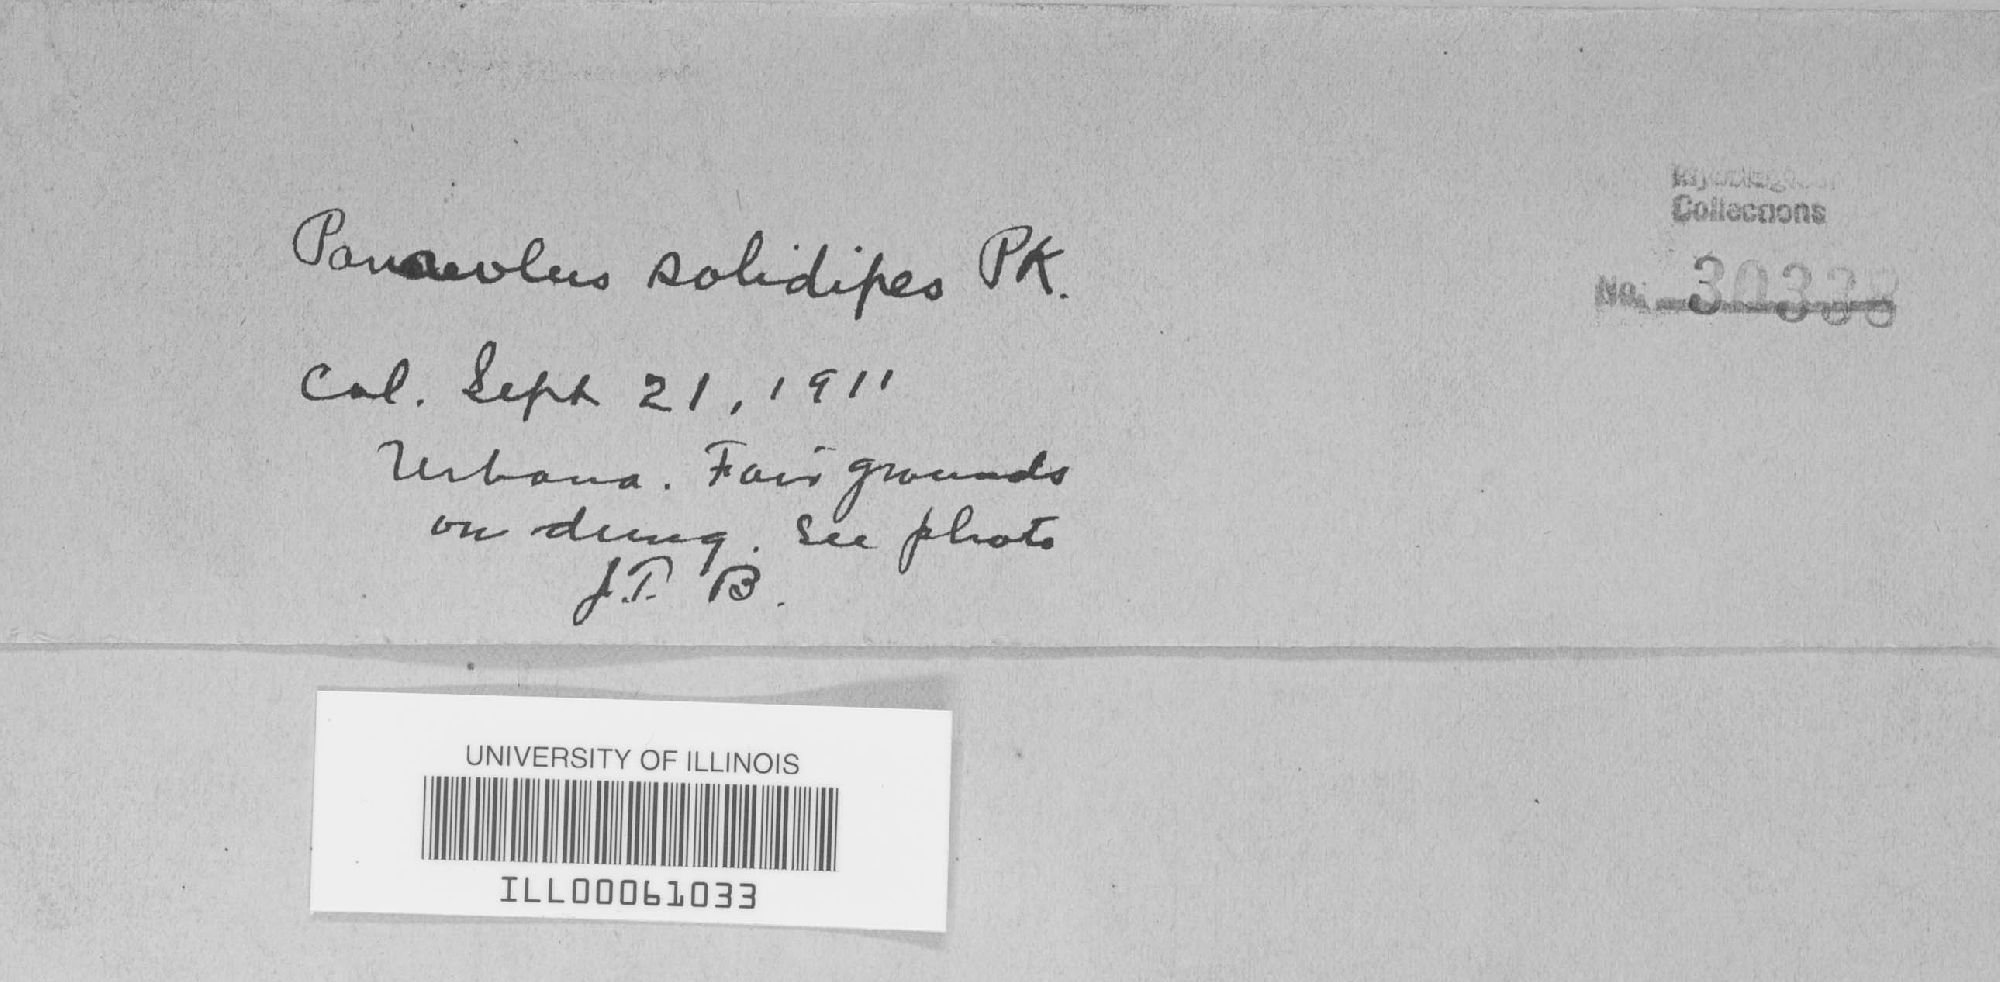 Panaeolus solidipes PK.
Col. Sept 21, 1911
Urbana. Fair grounds
on dung. See photo
J.T. B.
Mycological
Collections
No. 30338
UNIVERSITY OF ILLINOIS
ILL00061033